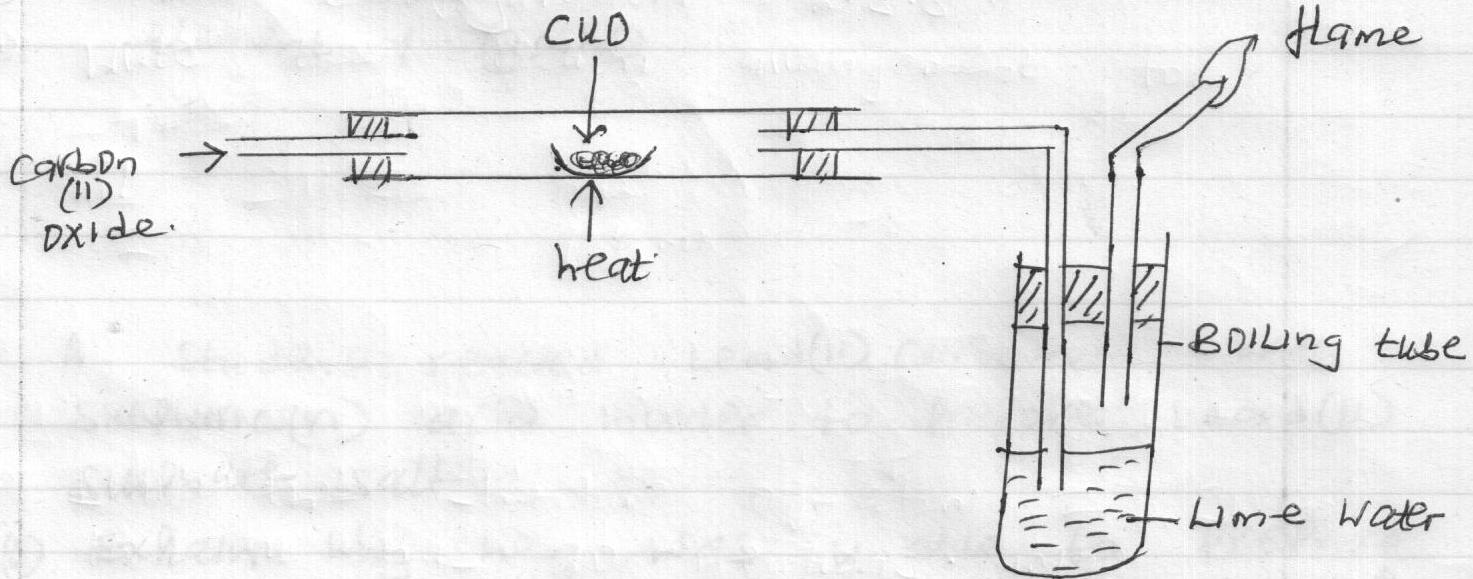 CUO
flame
Carbon
(II)
Oxide.
heat
BOILing tube
Lime Water